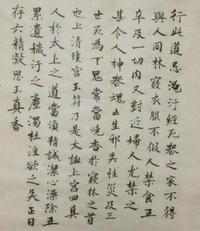 行此道忌淹汙經死喪之家不得
與人同牀寢衣服不假人禁食五
辛及一切肉又對近婦人尤禁之
甚令人神喪魂亡生邪失性災及三
世死為下鬼常當燒香於寢牀之首
也上清瓊宮玉符乃是太極上宮四真
人於太上之道當須精誠潔心澡除五
累遺穢汙之塵濁杜淫欲之失正目
存六精凝思玉真香